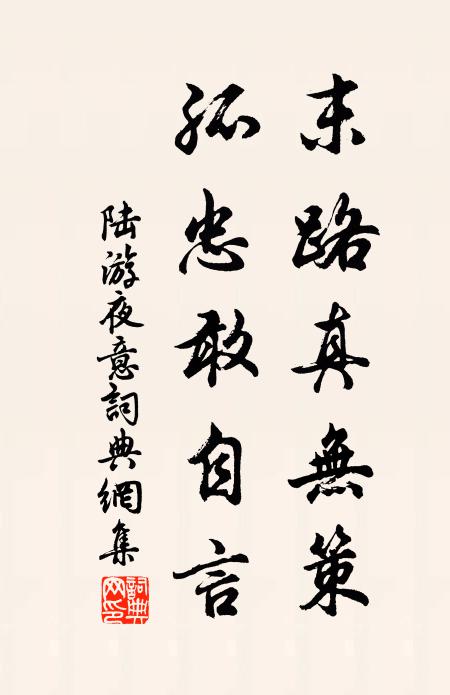 末路真無策
孤忠敢自言
陆游夜意詞典網集
詞典网印